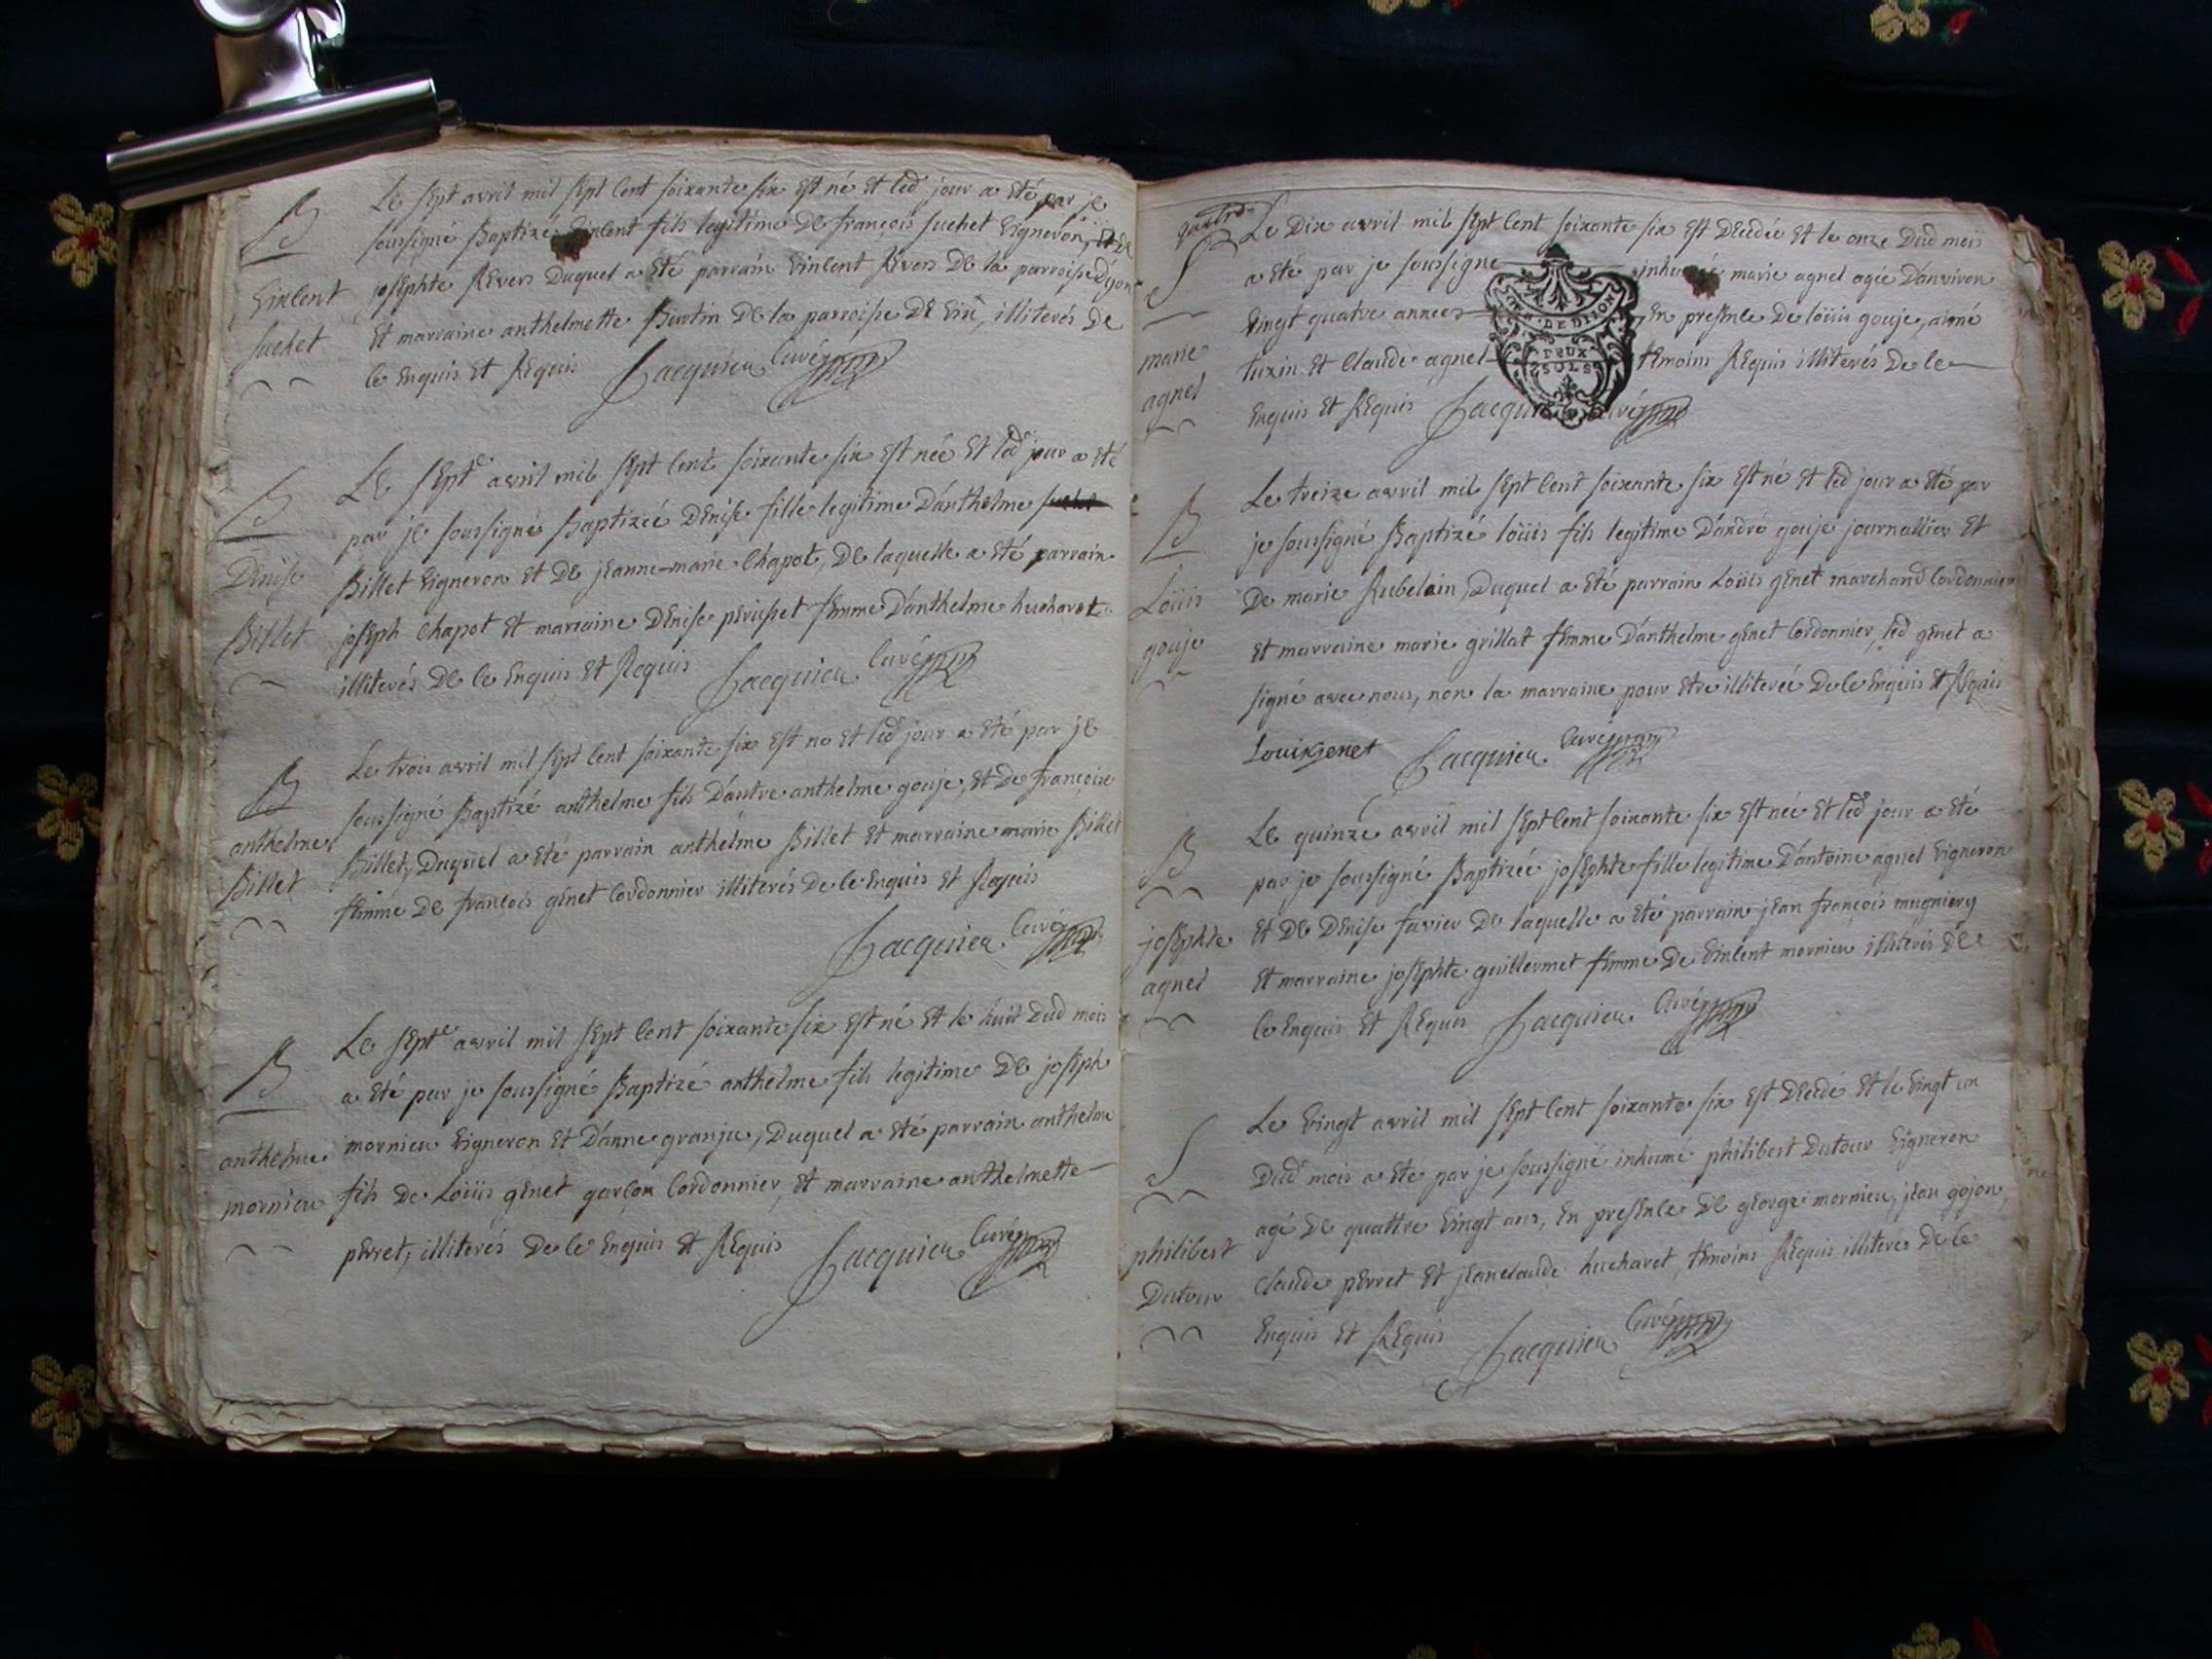 B
Vincent
suchet
Le sept avril mil sept cent soixante six est né et led jour a été par je
soussigné Baptizé Vincent fils legitime De françois suchet Vigneron, et de
josephte Revers Duquel a été parrain Vincent Revers De la parroisse d'yon
et marraine anthelmette Burtin De la parroisse De illiterés De
ce Enquis Et Requis Jacquier Curé
B
Denise
Billet
Le sept avril mil sept Cent soixante six est née et led jour a été
par je soussigné Baptizée Denise fille legitime D'anthelme
Billet Vigneron et De jeanne-marie Chapot, De laquelle a été parrain
joseph Chapot et marraine Denise perusset femme D'anthelme hucharet
illiterés De ce Enquis et Requis Jacquier Curé
B
anthelme
Billet
Le trois avril mil sept Cent soixante six est né et led jour a été par je
soussigné Baptizé anthelme fils D'autre anthelme gouje, et De françoise
Billet, Duquel a été parrain anthelme Billet et marraine marie Billet
femme De françois genet Cordonnier illiterés De ce Enquis et Requis
Jacquier Curé
B
anthelme
mornieu
Le sept avril mil sept Cent soixante six est né et le huit Dud mois
a été par je soussigné Baptizé anthelme fils legitime De joseph
mornieu Vigneron et D'anne granju, Duquel a été parrain anthelme
fils De Loüis genet garçon Cordonnier, et marraine anthelmette
perret, illiterés De ce Enquis et Requis Jacquier Curé
S
marie
agnel
Le Dix avril mil sept Cent soixante six est Decedée et le onze Dud mois
a été par je soussigné inhumée marie agnel agée D'environ
Vingt quatre annees En presence De loüis gouje, aimé
tuxin et Claude agnel temoins Requis illiterés De ce
Enquis et Requis Jacquier Curé
GEN. DE DIJON
DEUX
SOLS
B
Loüis
gouje
Le treize avril mil sept Cent soixante six est né et led jour a été par
je soussigné Baptizé loüis fils legitime D'andré gouje journallier et
De marie Rubelain, Duquel a été parrain Loüis genet marchand Cordonnier
et marraine marie grillat femme D'anthelme genet Cordonnier, led genet a
signé avec nous, non la marraine pour etre illiterée De ce Enquis et Requis
Louis genet Jacquier Curé
B
josephte
agnel
Le quinze avril mil sept Cent soixante six est née et led jour a été
par je soussigné Baptizée josephte fille legitime D'antoine agnel Vigneron
et De Denise favier De laquelle a été parrain jean françois mugniery
et marraine josephte guillermet femme De Vincent mornieu illiterés De
ce Enquis et Requis Jacquier Curé
S
philibert
Dutour
Le Vingt avril mil sept Cent soixante six est Decedé et le Vingt un
Dud mois a été par je soussigné inhumé philibert Dutour Vigneron
agé De quattre Vingt ans, En presence De george mornieu, jean gojon,
Claude perret et jeanclaude hucharet, temoins Requis illiterés De ce
Enquis et Requis Jacquier Curé